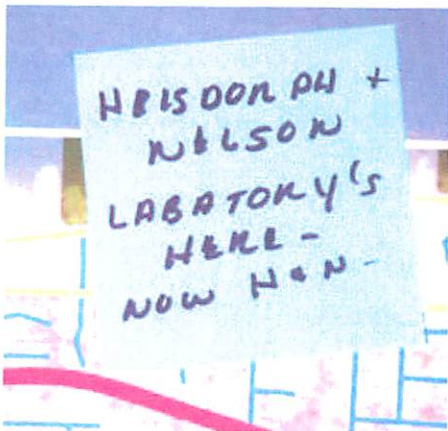 HEISDORPH +
NELSON
LABATORY'S
HERE -
NOW H&N -